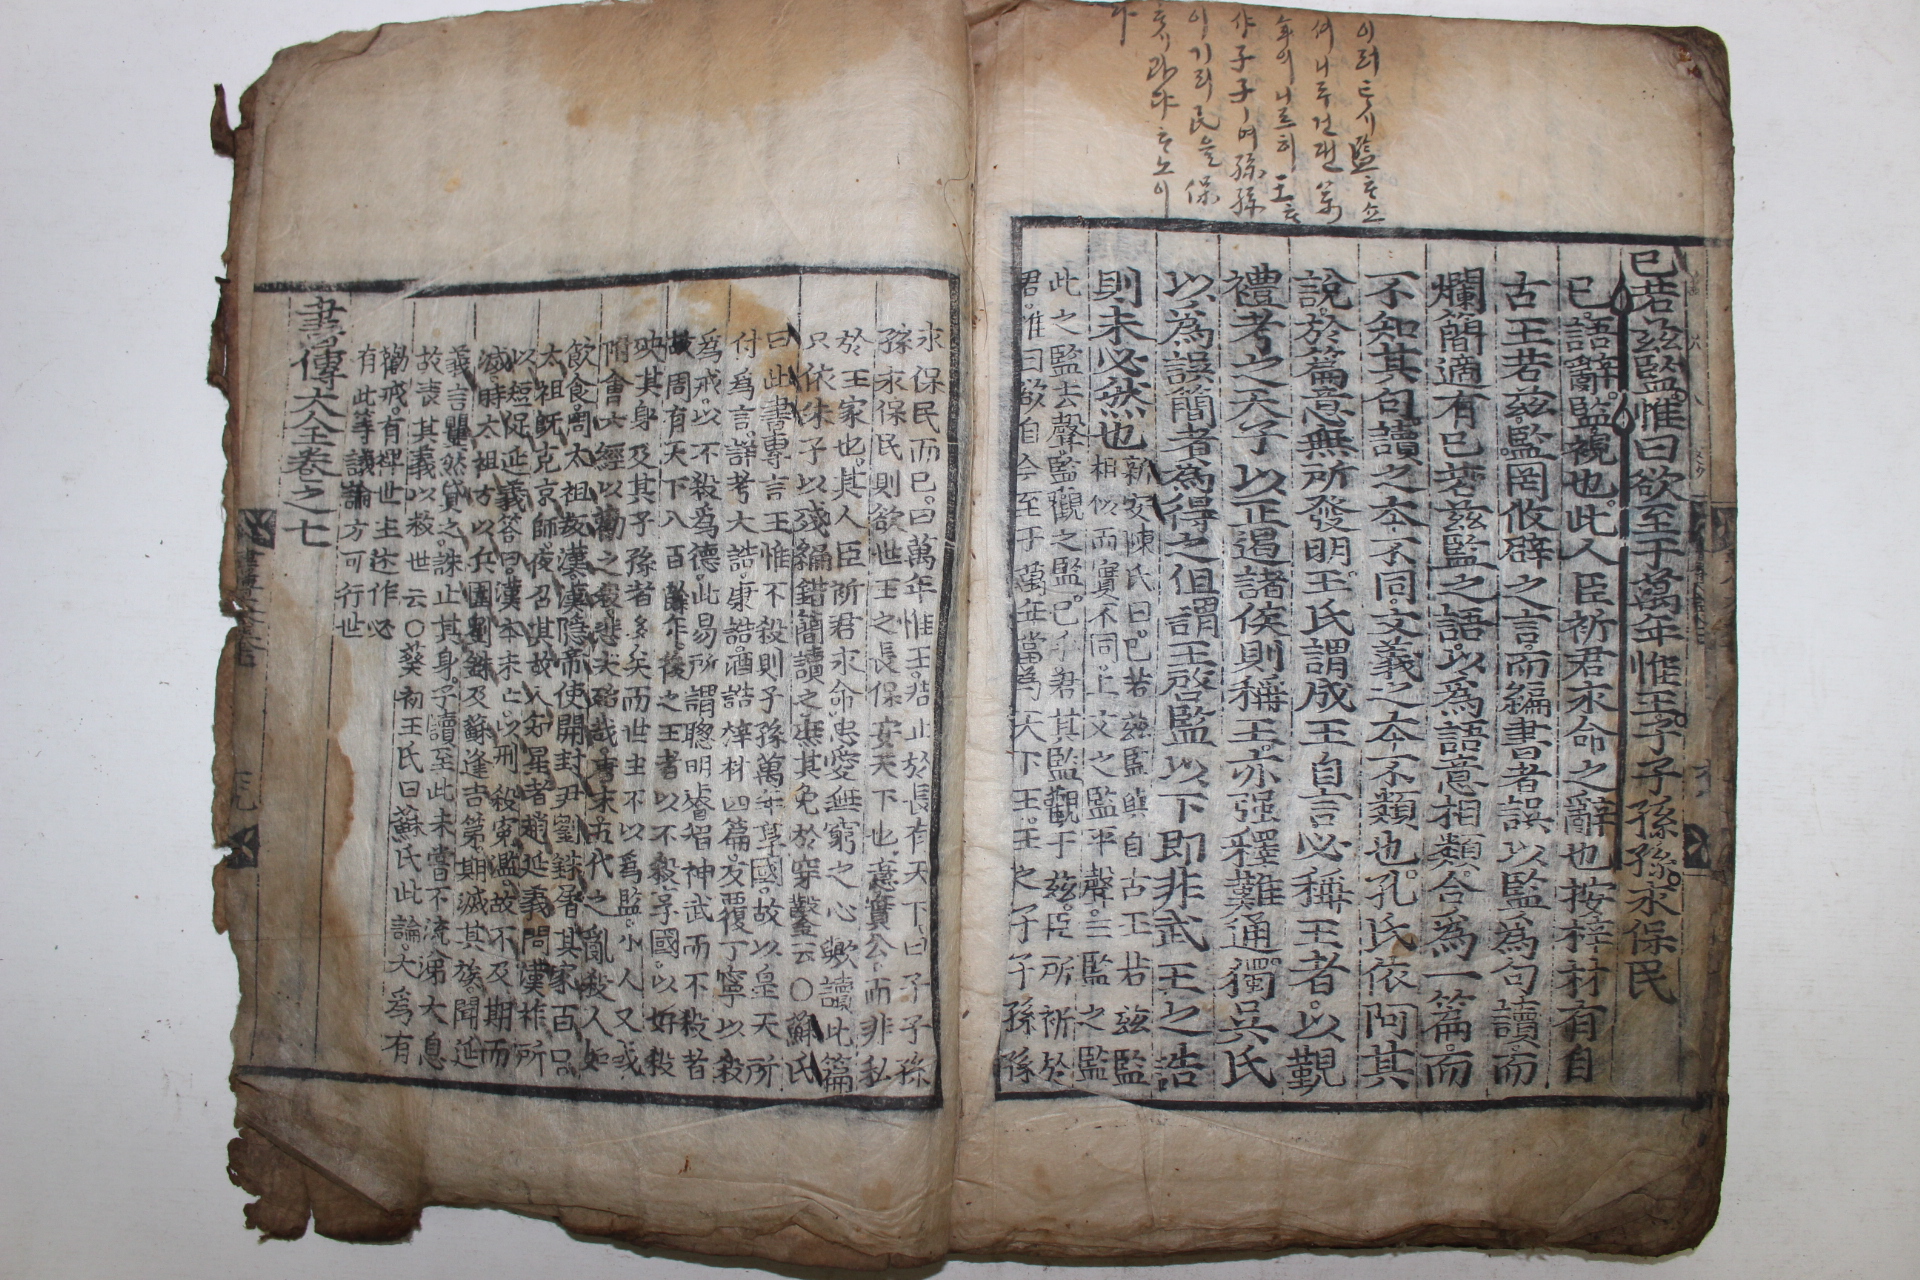 이러틋시監ᄒᆞ쇼
셔니두건댄 萬
年이니르히 王ᄒᆞ
샤子子ㅣ며孫孫
이기리民을保
ᄒᆞ시과댜ᄒᆞ노이
다
已若玆監惟曰欲至于萬年惟王子子孫孫永保民
已語辭監視也此人臣祈君永命之辭也按梓材有自
古王若玆監罔攸辟之言而編書者誤以監爲句讀而
爛簡適有已若玆監之語以爲語意相類合爲一篇而
不知其句讀之本不同文義之本不類也孔氏依阿其
說於篇意無所發明王氏謂成王自言必稱王者以覲
禮考之天子以正遏諸侯則稱王亦强釋難通獨吳氏
以爲誤簡者爲得之但謂王啓監以下即非武王之誥
則未必然也
新安陳氏曰已若玆監與自古王若玆監
相似而實不同上文之監平聲三監之監
此之監去聲監觀之監已乎君其監觀于玆臣所祈於
君惟曰欲自今至于萬年當爲天下王王之子子孫孫
永保民而已曰萬年惟王若止於長有天下曰子子孫
孫永保民則欲世王之長保安天下也意實公而非私
於王家也其人臣祈君永命忠愛無窮之心歟讀此篇
只依朱子以殘編錯簡讀之庶其免於穿鑿云〇蘇氏
曰此書專言王惟不殺則子孫萬年享國故以皇天所
付爲言詳考大誥康誥酒誥梓材四篇反覆丁寧以殺
爲戒以不殺爲德此易所謂聰明睿智神武而不殺者
故周有天下八百餘年後之王者以不殺享國以好殺
殃其身及其子孫者多矣而世主不以爲監小人又或
附會六經以勸之殺悲夫殆哉唐末五代之亂殺人如
飮食周太祖叛漢漢隱帝使開封尹劉銖屠其家百口
太祖旣克京師夜召其故人知星者趙延義問漢祚所
以短促延義答曰漢本未亡以刑殺寃濫故不及期而
滅時太祖方以兵圍劉銖及蘇逢吉第期滅其族聞延
義言矍然貸之誅止其身予讀至此未嘗不流涕太息
故表其義以救世云〇葵初王氏曰蘇氏此論大爲有
勸戒有裨世主述作必
有此等議論方可行世
書傳大全卷之七